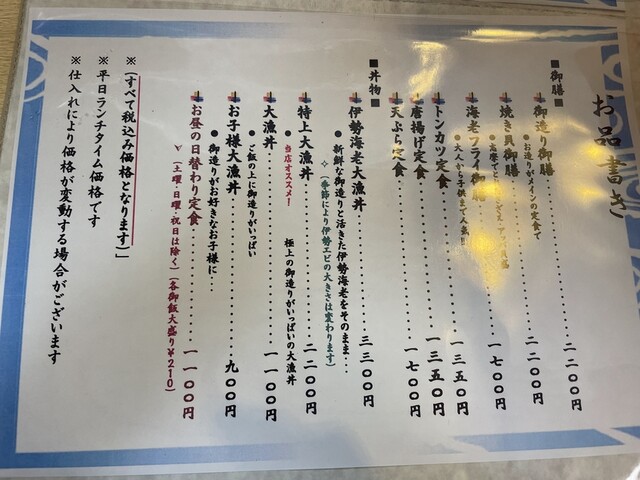 お品書き
■御膳■
御造り御膳‥‥‥‥‥‥二二〇〇円
●お造りがメインの定食で
焼き貝御膳
海老フライ御膳‥‥‥一七〇〇円
●大人から子供まで人気!!
トンカツ定食‥‥‥‥一三五〇円
唐揚げ定食‥‥‥‥‥一三五〇円
天ぷら定食‥‥‥‥‥一七〇〇円
■丼物■
伊勢海老大漁丼‥‥‥三三〇〇円
●新鮮な御造りと活きた伊勢海老をそのまま‥‥
(季節により伊勢エビの大きさは変わります)
特上大漁丼‥‥‥‥‥二二〇〇円
●当店オススメ! 極上の御造りがいっぱいの大漁丼
大漁丼‥‥‥‥‥‥‥一一〇〇円
●ご飯の上に御造りがいっぱい
お子様大漁丼‥‥‥‥九〇〇円
●御造りがお好きなお子様に‥‥
お昼の日替わり定食‥‥一一〇〇円
(土曜・日曜・祝日は除く)(各御飯大盛り¥210)
※(すべて税込み価格となります)」
※平日ランチタイム価格です
※仕入れにより価格が変動する場合がございます